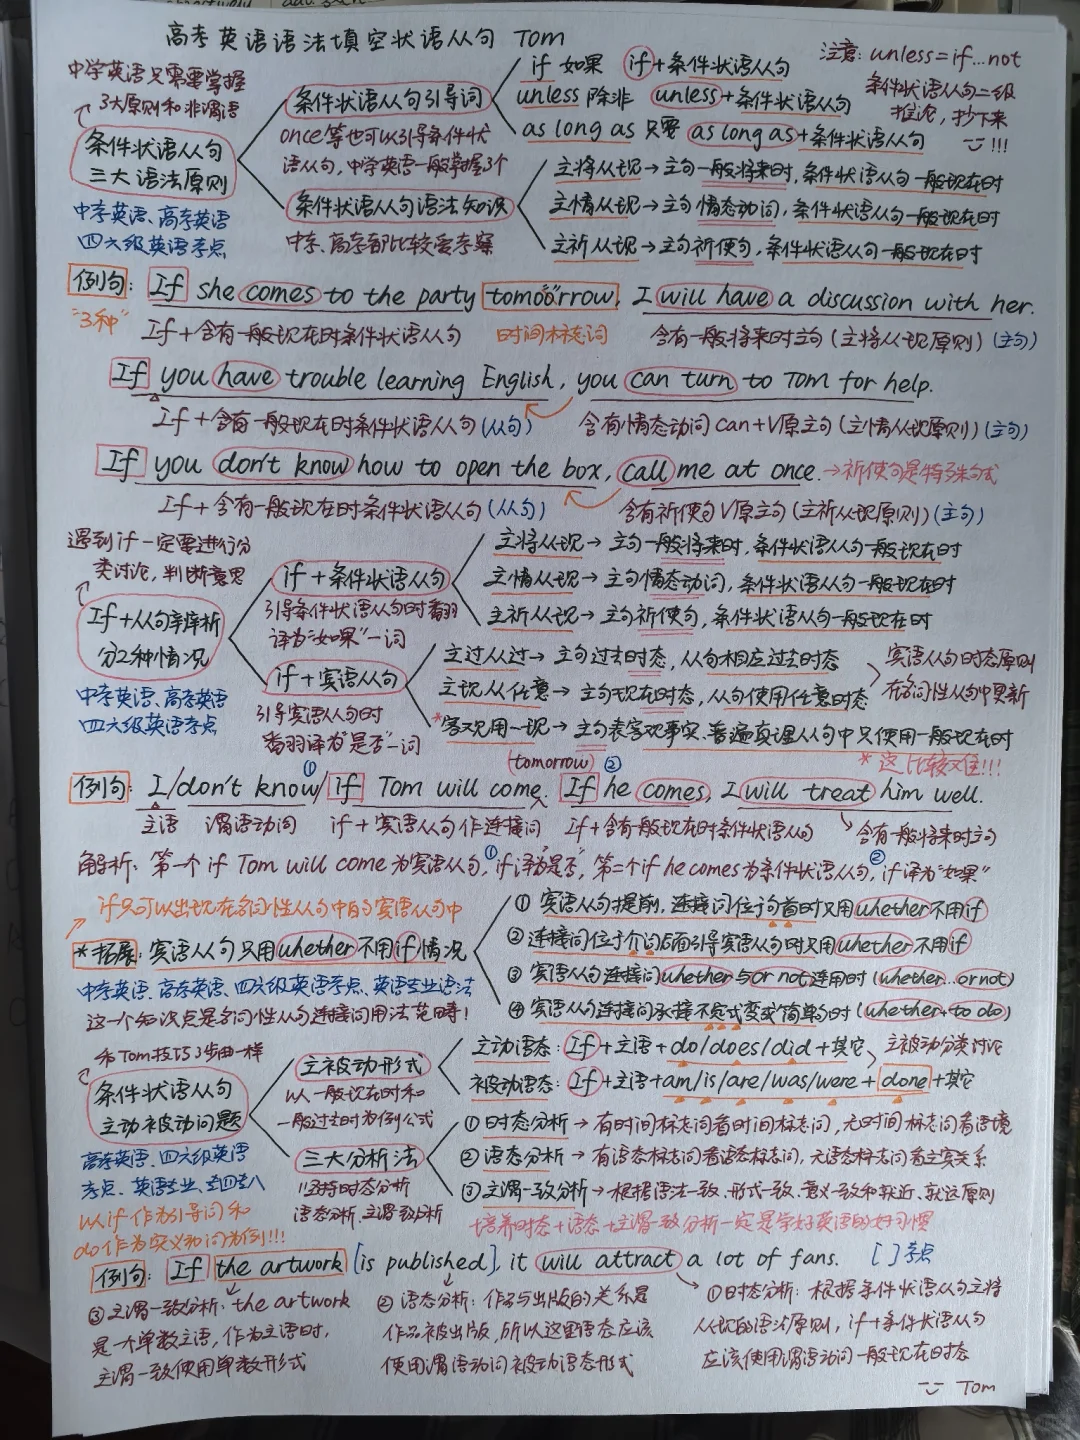 高考英语语法填空状语从句 Tom
中学英语只需要掌握
3大原则和非谓语
条件状语从句
三大语法原则
中考英语、高考英语
四六级英语考点
条件状语从句引导词
once等也可以引导条件状
语从句,中学英语一般掌握3个
if 如果 if+条件状语从句
unless 除非 unless+条件状语从句
as long as 只要 as long as+条件状语从句
注意: unless=if...not
条件状语从句二级
推论,抄下来
!!!
条件状语从句语法知识
中考、高考都比较爱考察
主将从现→主句一般将来时,条件状语从句一般现在时
主情从现→主句情态动词,条件状语从句一般现在时
主祈从现→主句祈使句,条件状语从句一般现在时
例句: If she comes to the party tomorrow, I will have a discussion with her.
"3种" If+含有一般现在时条件状语从句 时间标志词 含有一般将来时主句(主将从现原则)(主句)
If you have trouble learning English, you can turn to Tom for help.
If+含有一般现在时条件状语从句(从句) 含有情态动词can+V原主句(主情从现原则)(主句)
If you don't know how to open the box, call me at once.→祈使句是特殊句式
If+含有一般现在时条件状语从句(从句) 含有祈使句V原主句(主祈从现原则)(主句)
遇到if一定要进行分
类讨论,判断意思
If+从句辨析
分2种情况
中考英语、高考英语
四六级英语考点
if+条件状语从句
引导条件状语从句时翻
译为"如果"一词
主将从现→主句一般将来时,条件状语从句一般现在时
主情从现→主句情态动词,条件状语从句一般现在时
主祈从现→主句祈使句,条件状语从句一般现在时
if+宾语从句
引导宾语从句时
翻译为"是否"一词
主过从过→主句过去时态,从句相应过去时态
主现从任意→主句现在时态,从句使用任意时态
*客观用一现→主句表客观事实、普遍真理从句中只使用一般现在时
宾语从句时态原则
在名词性从句中更新
*这比较难!!!
(tomorrow) ②
例句: I/don't know①/if Tom will come. If he comes, I will treat him well.
主语 谓语动词 if+宾语从句作连接词 If+含有一般现在时条件状语从句 含有一般将来时主句
解析: 第一个if Tom will come为宾语从句①,if译为"是否",第二个if he comes为条件状语从句②,if译为"如果"
if只可以出现在名词性从句中的宾语从句中
*拓展: 宾语从句只用whether不用if情况
中考英语、高考英语、四六级英语考点、英语专业语法
这一个知识点是名词性从句连接词用法范畴!
① 宾语从句提前,连接词位于句首时只用whether不用if
② 连接词位于介词后面引导宾语从句时只用whether不用if
③ 宾语从句连接词whether与or not连用时(whether...or not)
④ 宾语从句连接词承接不定式变成简单句时(whether+to do)
和Tom技巧3步曲一样
条件状语从句
主动被动问题
高考英语、四六级英语
考点、英语专业、专四专八
以if作为引导词和
do作为实义动词为例!!!
主被动形式
以一般现在时和
一般过去时为例公式
主动语态: If+主语+do/does/did+其它
被动语态: If+主语+am/is/are/was/were+done+其它
主被动分类讨论
三大分析法
坚持时态分析
语态分析、主谓一致分析
① 时态分析→有时间标志词看时间标志词,无时间标志词看语境
② 语态分析→有语态标志词看语态标志词,无语态标志词看主宾关系
③ 主谓一致分析→根据语法一致、形式一致、意义一致和就近、就远原则
培养时态+语态+主谓一致分析一定是学好英语的好习惯
例句: If the artwork [is published], it will attract a lot of fans. [ ]考点
③ 主谓一致分析: the artwork
是一个单数主语,作为主语时,
主谓一致使用单数形式
② 语态分析: 作品与出版的关系是
作品被出版,所以这里语态应该
使用谓语动词被动语态形式
①时态分析: 根据条件状语从句主将
从现的语法原则, if+条件状语从句
应该使用谓语动词一般现在时态
Tom